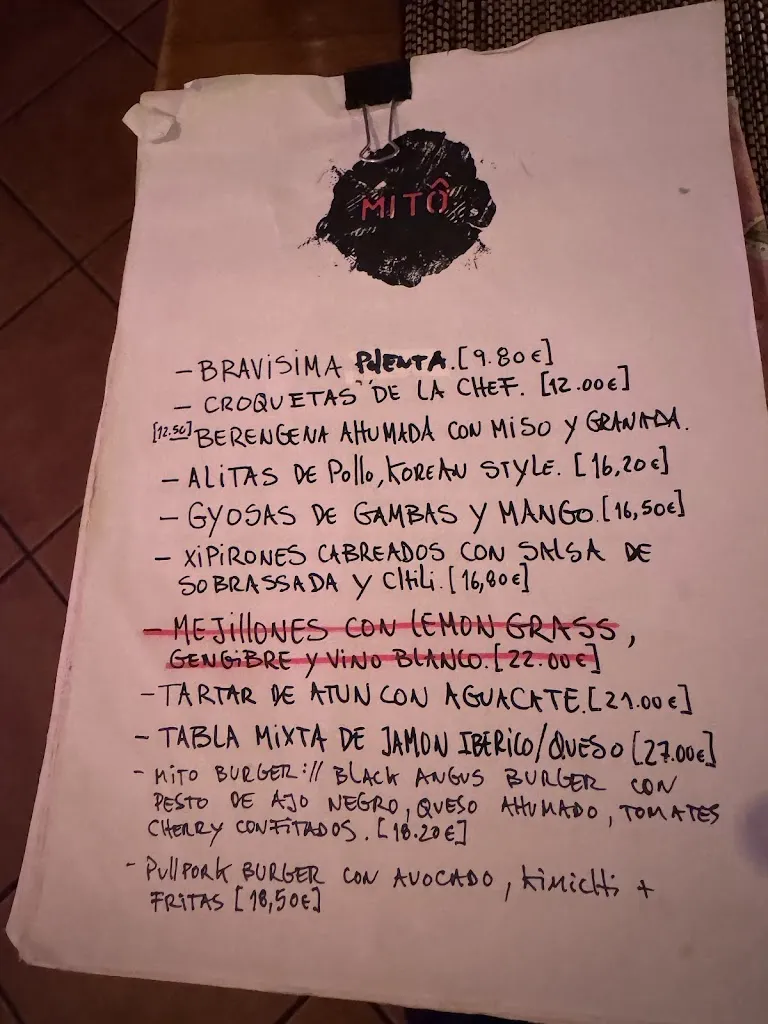 MITÔ
- BRAVISIMA POLENTA. [9.80€]
- CROQUETAS DE LA CHEF. [12.00€]
[12.50] BERENGENA AHUMADA CON MISO Y GRANADA.
- ALITAS DE POLLO, KOREAN STYLE. [16,20€]
- GYOSAS DE GAMBAS Y MANGO. [16,50€]
- XIPIRONES CABREADOS CON SALSA DE
SOBRASSADA Y CHILI. [16,80€]
- MEJILLONES CON LEMON GRASS,
GENGIBRE Y VINO BLANCO. [22.00€]
- TARTAR DE ATUN CON AGUACATE. [21.00€]
- TABLA MIXTA DE JAMON IBERICO/QUESO [27.00€]
- MITO BURGER:// BLACK ANGUS BURGER CON
PESTO DE AJO NEGRO, QUESO AHUMADO, TOMATES
CHERRY CONFITADOS. [18.20€]
- PULLPORK BURGER CON AVOCADO, KIMICHI +
FRITAS [18,50€]